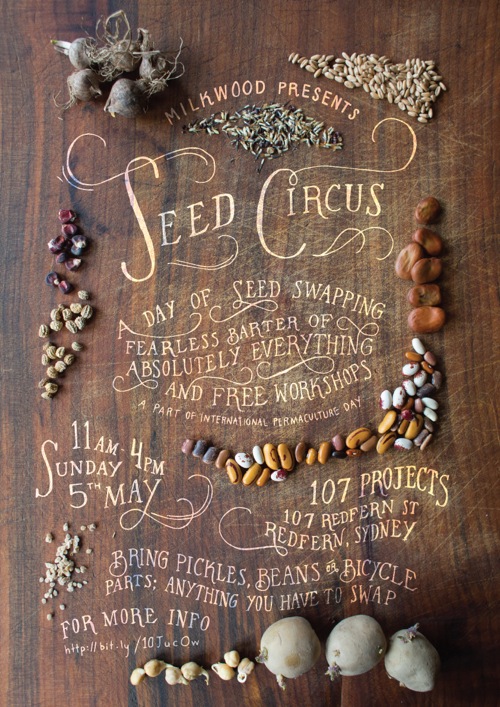 MILKWOOD PRESENTS
SEED CIRCUS
A DAY OF SEED SWAPPING
FEARLESS BARTER OF
ABSOLUTELY EVERYTHING
AND FREE WORKSHOPS
A PART OF INTERNATIONAL PERMACULTURE DAY
11AM-4PM
SUNDAY
5TH MAY
107 PROJECTS
107 REDFERN ST
REDFERN, SYDNEY
BRING PICKLES, BEANS OR BICYCLE
PARTS; ANYTHING YOU HAVE TO SWAP
FOR MORE INFO
http://bit.ly/10JucOw